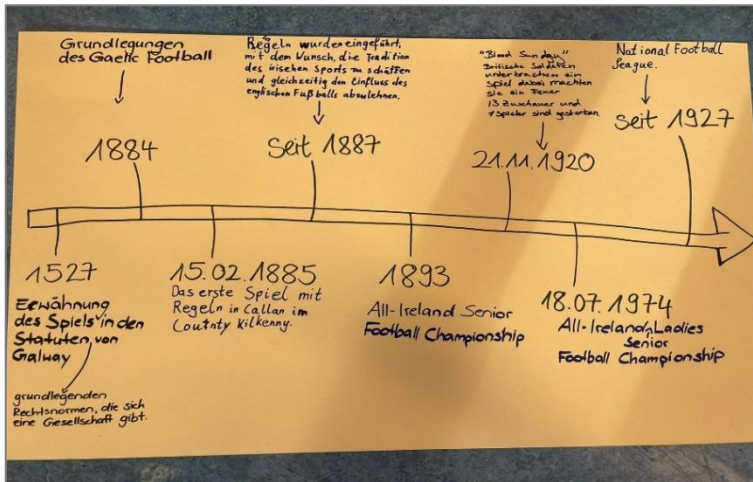 Grundlegungen
des Gaelic Football
1884
Regeln wurden eingeführt,
mit dem Wunsch, die Tradition
des irischen Sports zu schützen
und gleichzeitig den Einfluss des
englischen Fußballs abzulehnen.
Seit 1887
"Bloody Sunday"
Britische Soldaten
unterbrachen ein
Spiel dabei machten
sie ein Feuer
13 Zuschauer und
1 Spieler sind gestorben
21.11.1920
National Football
League.
Seit 1927
1527
Erwähnung
des Spiels in den
Statuten von
Galway
grundlegenden
Rechtsnormen, die sich
eine Gesellschaft gibt.
15.02.1885
Das erste Spiel mit
Regeln in Callan im
Coutnty Kilkenny.
1893
All-Ireland Senior
Football Championship
18.07.1974
All-Ireland Ladies
Senior
Football Championship